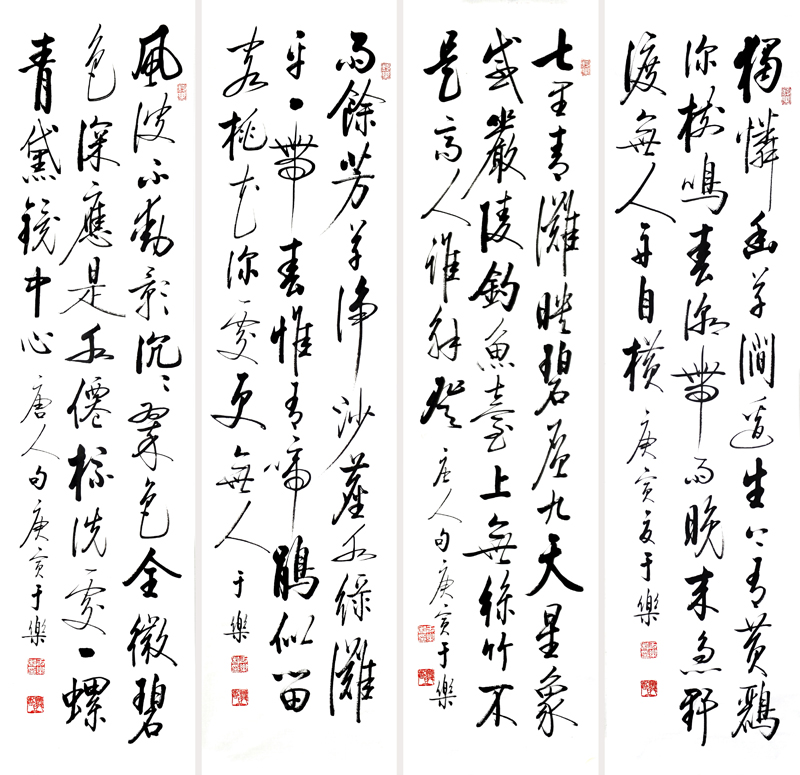 獨憐幽草澗邊生上有黄鸝
深樹鳴春潮帶雨晚来急野
渡無人舟自横 庚寅夏于樂
七里青灘映碧層九天星象
感嚴陵釣魚臺上無絲竹不
是高人誰解登 唐人句庚寅于樂
雨餘芳草净沙塵水緑灘
平一帶春惟有啼鵑似留
客桃花深處更無人 于樂
風波不動影沉〻翠色全微碧
色深應是水僊梳洗處一螺
青黛鏡中心 唐人句庚寅于樂